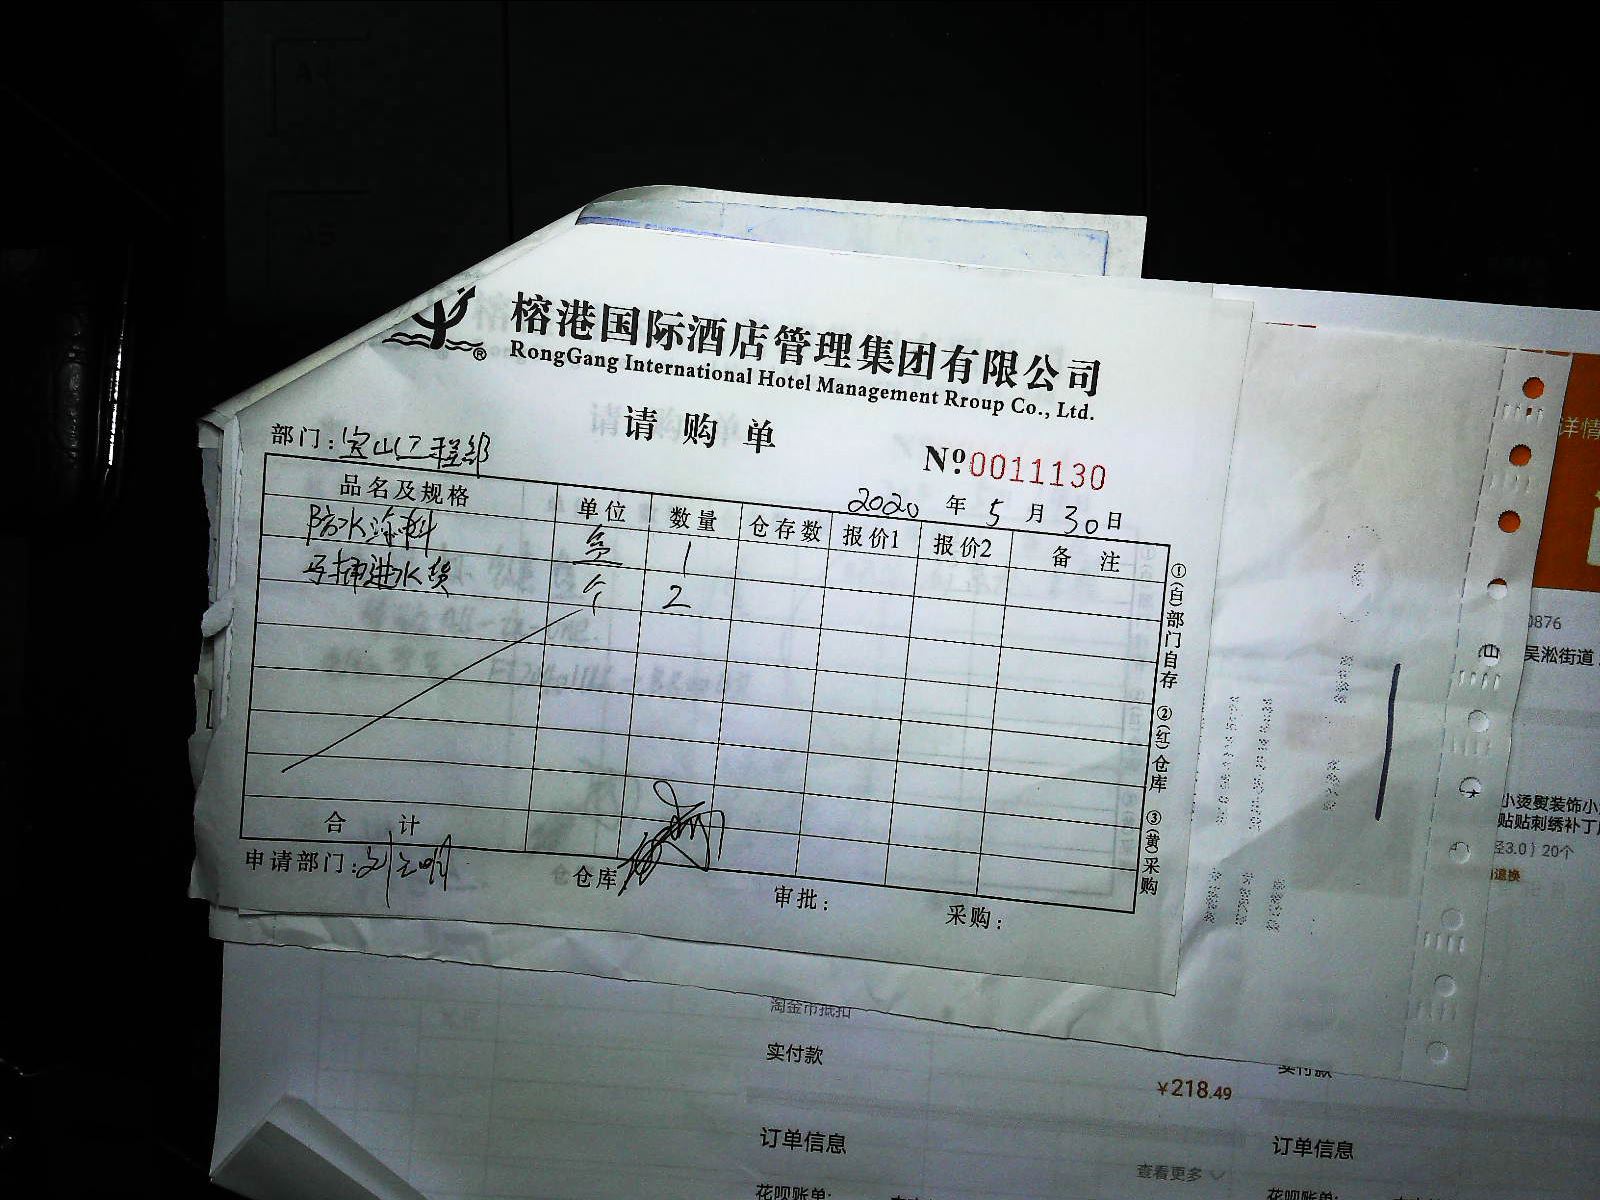 榕港国际酒店管理集团有限公司
®
RongGang International Hotel Management Rroup Co., Ltd.
请购单
部门:宝山工程部
Nº0011130
2020 年 5 月 30 日
品名及规格 单位 数量 仓存数 报价1 报价2 备 注
防水涂料 1
马桶进水 个 2
合 计
①(白)部门自存 ②(红)仓库 ③(黄)采购
申请部门: 仓库 审批: 采购:
详情
0876
山 吴淞街道
小烫熨装饰小
贴贴刺绣补丁
径3.0）20个
退换
淘金币抵扣
实付款 实付款
¥218.49
订单信息 订单信息
查看更多
花呗账单: 花呗账单: